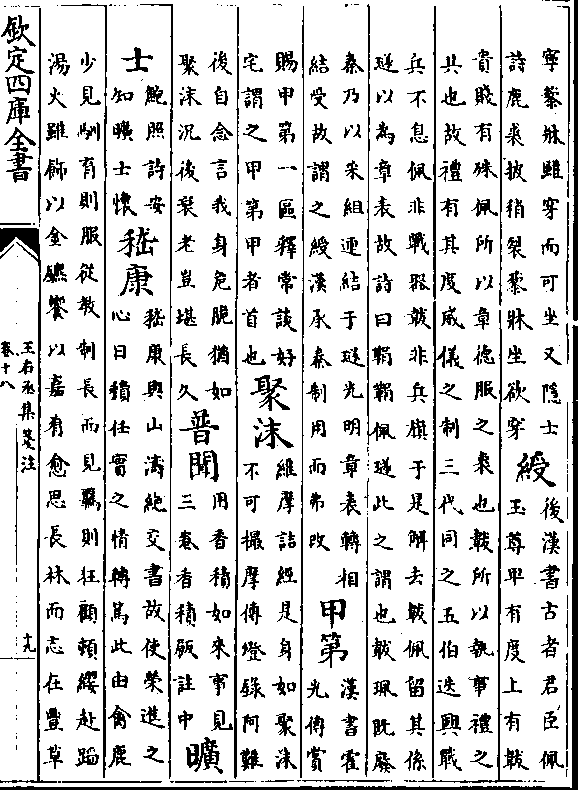 寧藜牀雖穿而可坐又隱士
詩鹿裘披稍裂藜牀坐欲穿
綬
後漢書古者君臣佩
玉尊卑有度上有韍
貴賤有殊佩所以章德服之衷也韍所以執事禮之
共也故禮有其度威儀之制三代同之五伯迭興戰
兵不息佩非戰器韍非兵旗于是解去韍佩留其係
璲以為章表故詩曰鞙鞙佩璲此之謂也韍珮既廢
秦乃以采組連結于璲光明章表轉相
結受故謂之綬漢承秦制用而弗改
甲第
漢書霍
光傳賞
賜甲第一區釋常談好
宅謂之甲第甲者首也
聚沫
維摩詰經是身如聚沫
不可撮摩傳燈錄阿難
後自念言我身危脆猶如
聚沫況後衰老豈堪長久
普聞
用香積如來事見
三卷香積飯註中
曠
士
鮑照詩安
知曠士懷
嵇康
嵇康與山濤絶交書故使榮進之
心日積任實之情轉篤此由禽鹿
少見馴育則服從教制長而見羈則狂顧頓纓赴蹈
湯火雖飾以金鑣饗以嘉肴愈思長林而志在豐草
欽定四庫全書
王右丞集箋注
卷十八
十九